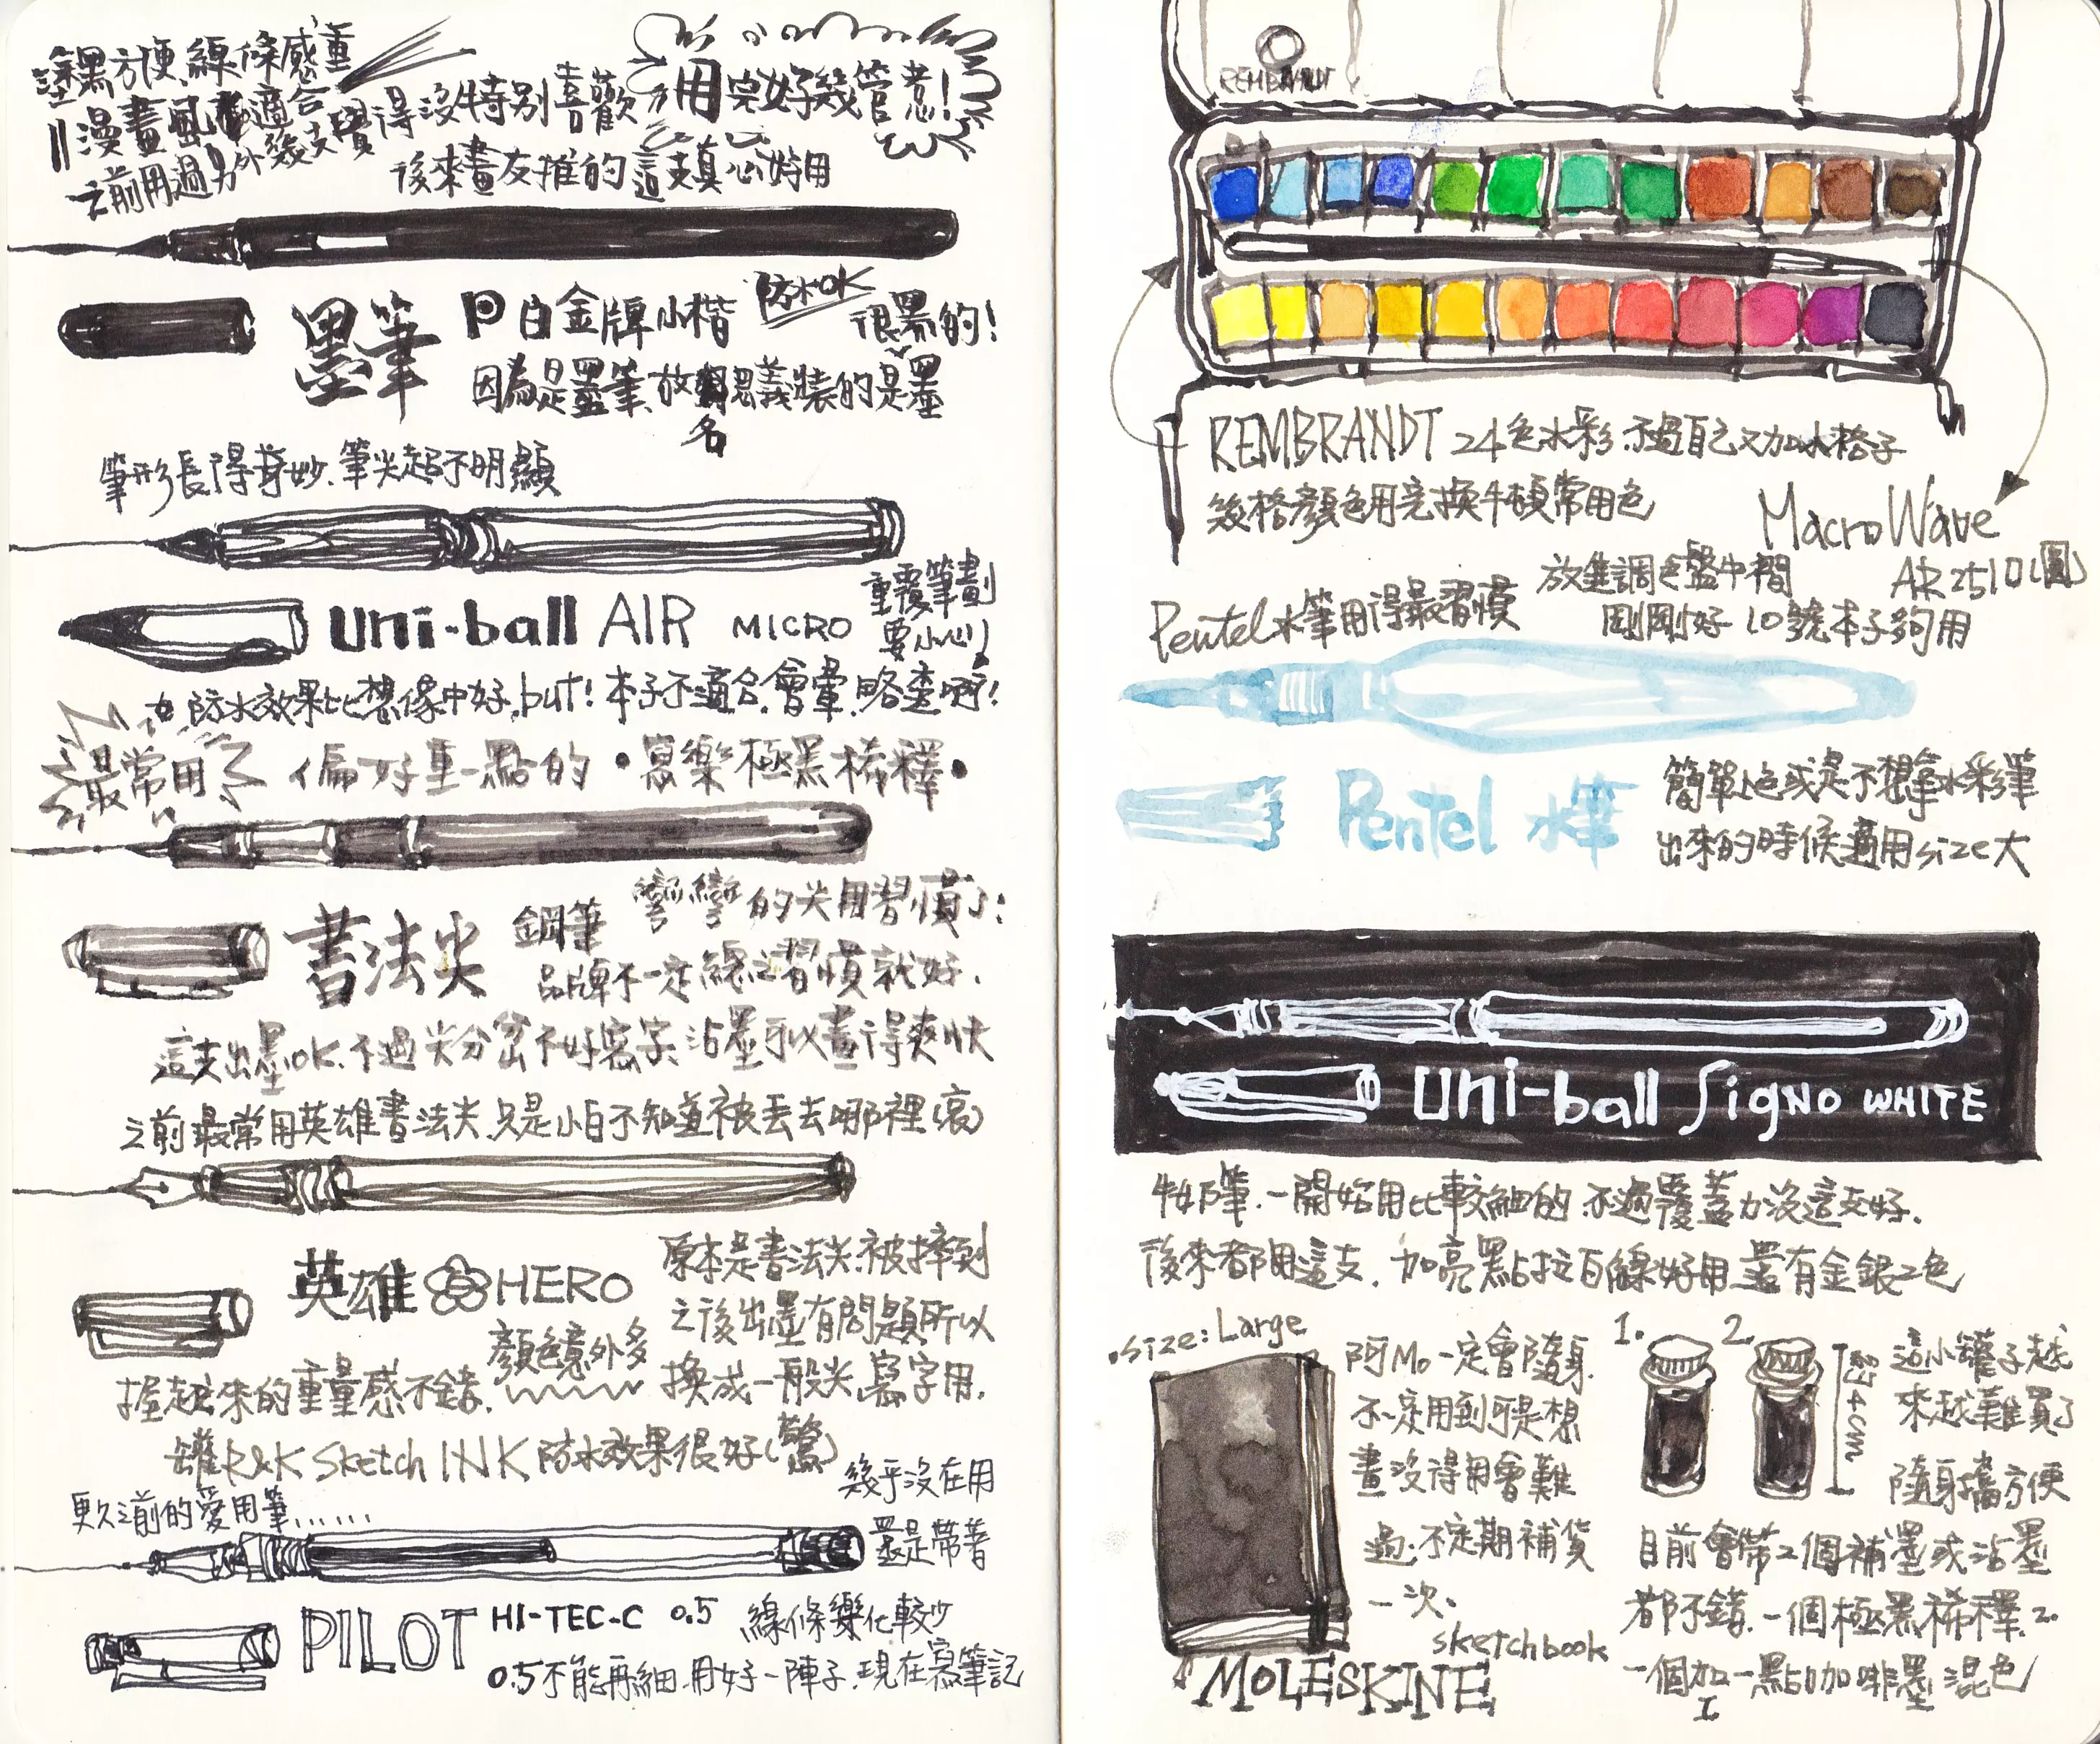 塗黑方便、線條感重
漫畫風適合
之前用過另外幾支覺得沒特別喜歡
用完好幾管惹!
後來畫友推的這支真心好用
墨筆
白金牌小楷
防水OK
很黑的!
因為是墨筆、故名思義裝的是墨
筆形長得奇妙、筆尖超不明顯
uni-ball AIR MICRO
重覆筆劃
要小心!
防水效果比想像中好,but!本子不適合,會暈、略透啊!
最常用
偏好重一點的・寫樂極黑稀釋・
書法尖
鋼筆
彎彎的尖用習慣了!
品牌不一定總之習慣就好、
這支出墨OK、不過尖分岔不好寫字、沾墨可以畫得爽快
之前最常用英雄書法尖、只是小白不知道被丟去哪裡(哀)
英雄 HERO
原本是書法尖、被摔到
之後出墨有問題所以
換成一般尖、寫字用、
顏色意外多
握起來的重量感不錯、
罐R&K Sketch INK 防水效果很好(驚)
更久之前的愛用筆......
幾乎沒在用
還是帶著
PILOT
HI-TEC-C 0.5
線條變化較少
0.5不能再細、用好一陣子、現在寫筆記
REMBRANDT
REMBRANDT 24色水彩、不過自己又加水格子
幾格顏色用完換牛頓常用色
MacroWave
AR2510(圓)
放進調色盤中間
剛剛好 10號本子夠用
Pentel水筆用得最習慣
Pentel 水筆
簡單上色或是不想拿水彩筆
出來的時候適用size大
uni-ball SigNO WHITE
牛奶筆、一開始用比較細的、不過覆蓋力沒這支好、
後來都用這支、加亮點拉白線好用、還有金銀2色
size: Large
阿Mo一定會隨身、
不一定用到可是想
畫沒得用會難
過、不定期補貨
一次、
sketchbook
MOLESKINE
1. 2.
4cm
這小罐子越
來越難買了
隨身攜方便
目前會帶2個補墨或沾墨
都不錯、一個極黑稀釋、2.
一個加一點咖啡墨混色